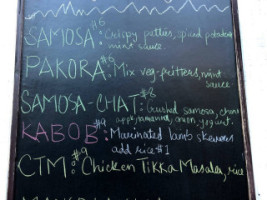 SAMOSA $6: Crispy patties, spiced potatoes
mint sauce
PAKORA $6: Mix veg. fritters, mint
sauce
SAMOSA-CHAT $8: Crushed samosa, chana
onion, yogurt.
KABOB $9: Marinated lamb skewers
add rice $1
CTM $9: Chicken Tikka Masala, rice